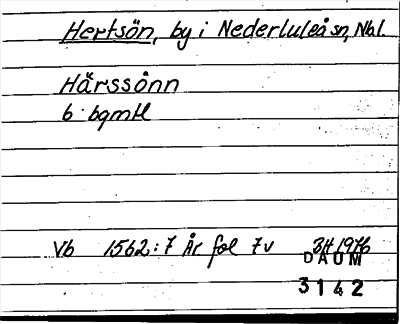 Hertsön, by i Nederluleå sn, Nbl.
Härssånn
6 bgmH
Vb 1562:7 År fol 7v BH 1976
DAUM
3142